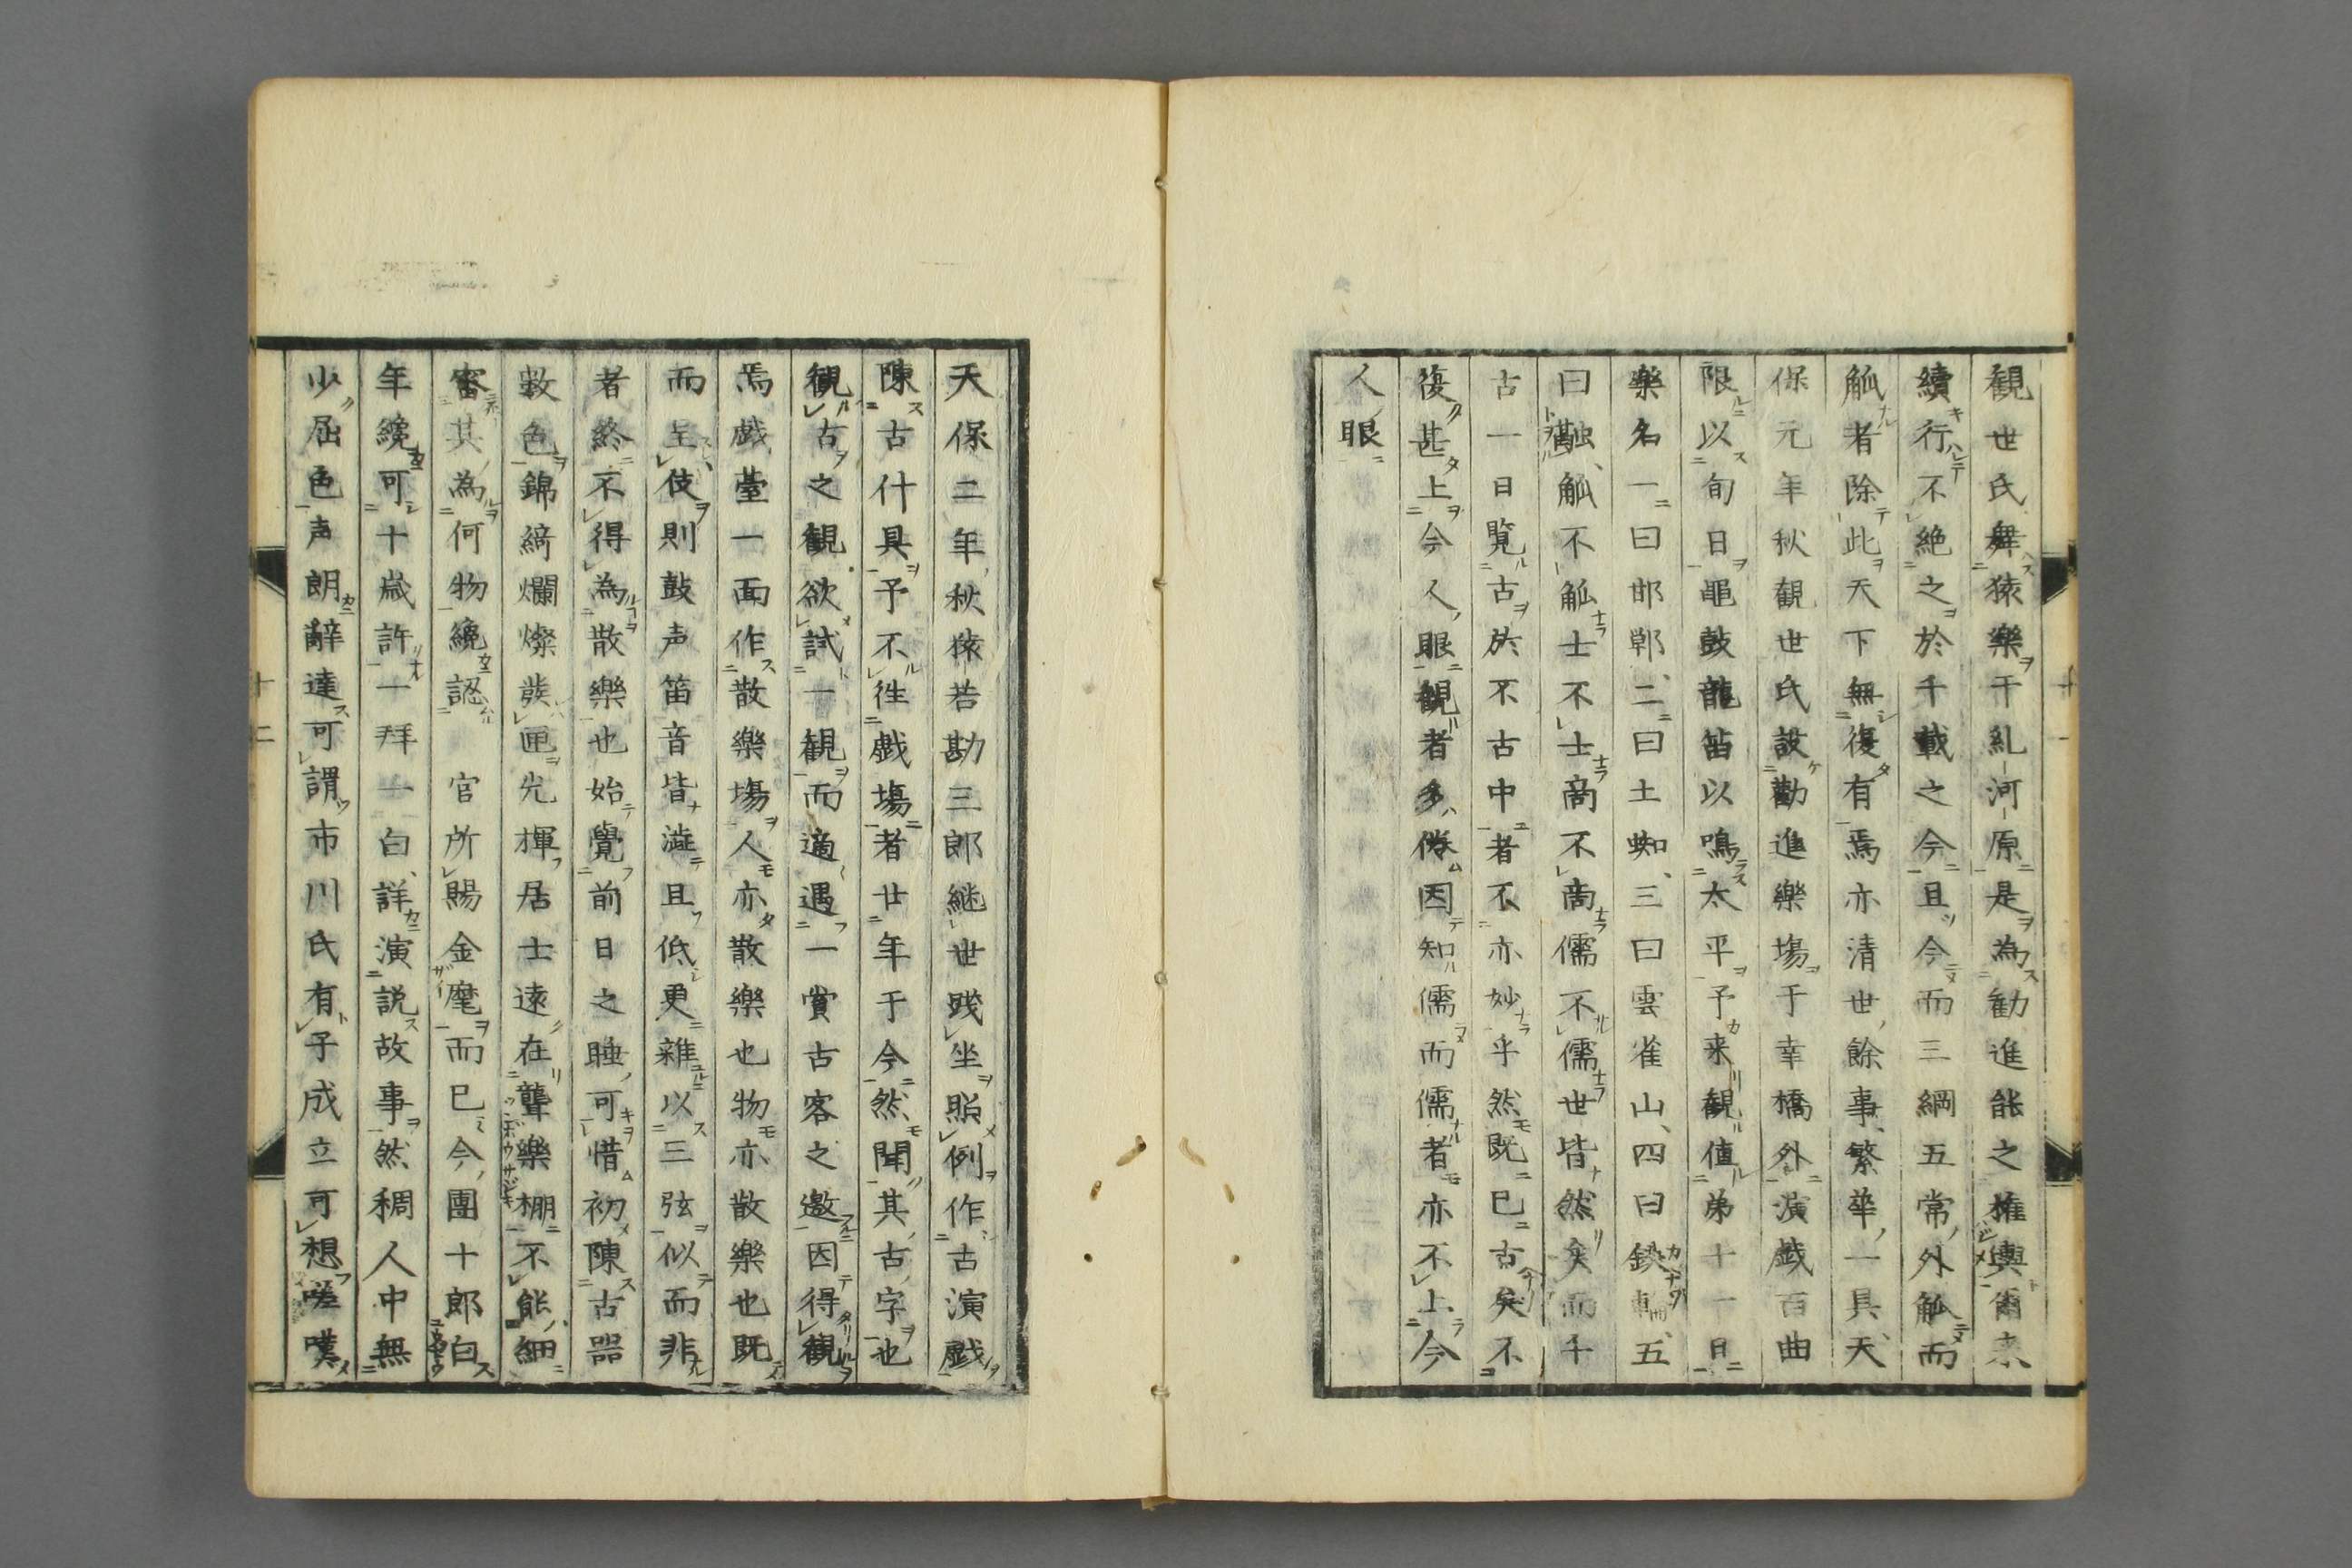 観世氏舞猿樂于糺河原是為勧進能之権輿爾来
續行不絶之於千載之今且今而三綱五常外觚而
觚者除此天下無復有焉亦清世餘事繁華一具天
保元年秋観世氏設勸進樂場于幸橋外演戯百曲
限以旬日鼉鼓龍笛以鳴太平予来観値弟十一日
樂名一曰邯鄲、二曰土蜘、三曰雲雀山、四曰鉄輪、五
曰融、觚不觚士不士啇不啇儒不儒世皆然矣而千
古一日覧古於不古中者不亦妙乎然既已古矣不
復甚上今人眼観者多倦因知儒而儒者亦不上今
人眼
天保二年秋猿若勘三郎継世残坐照例作古演戯
陳古什具予不徃戯場者廿年于今然聞其古字也
観古之観欲試一観而適遇一賞古客之邀因得観
焉戯臺一面作散樂場人亦散樂也物亦散樂也既
而呈伎則鼓声笛音皆澁且低更雜以三弦似而非
者終不得為散樂也始覺前日之睡可惜初陳古器
數色錦綺爛燦蔟匣光揮居士遠在聾樂棚不能細
審其為何物纔認 官所賜金麾而已今團十郎白
年纔可十歳許一拜一白詳演説故事然稠人中無
少屈色声朗辭達可謂市川氏有子成立可想嗟嘆
十一
十二